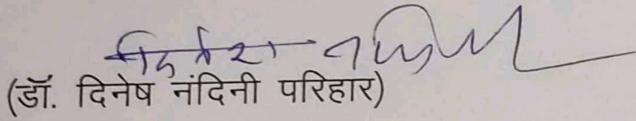 (डॉ. दिनेष नंदिनी परिहार)